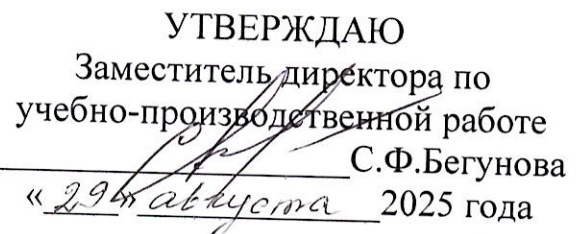 УТВЕРЖДАЮ
Заместитель директора по
учебно-производственной работе
С.Ф.Бегунова
« 29 » августа 2025 года